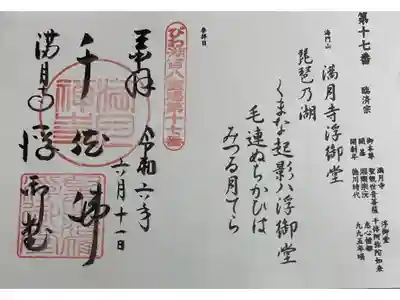 第十七番 臨済宗
海門山 満月寺浮御堂
御本尊
開基
開創年
満月寺
聖観世音菩薩
湖南宗沅
徳川時代
浮御堂
千体阿弥陀如来
恵心僧都
九九五年頃
琵琶乃湖
くまな起影八浮御堂
毛連ぬちかひは
みつる月てら
参拝日
びわ湖百八霊場第十七番
奉拝 令和六年六月十一日
千体佛
満月寺 浮御堂